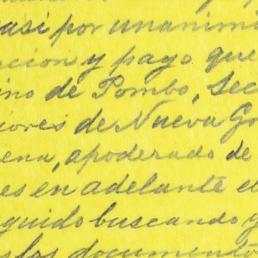 así por unanimi
cion y pago que
ino de Pombo, Sec
iores de Nueva G
ena, apoderado de
es en adelante e
guido buscando y
los documento